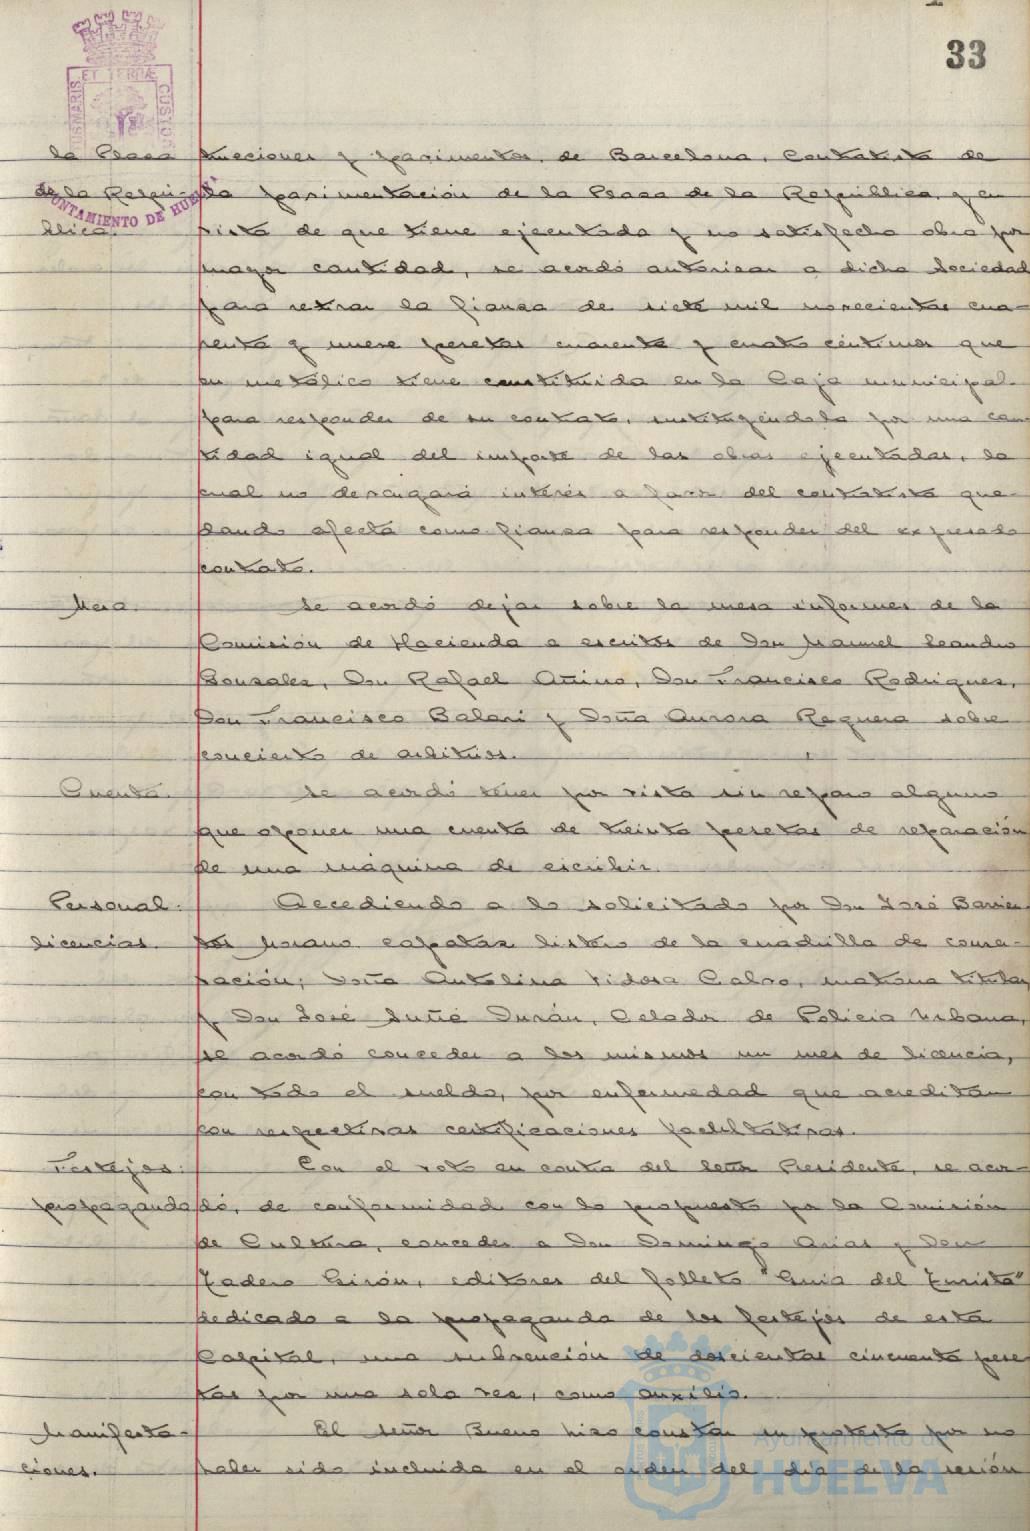 33
ET TERRAE
AYUNTAMIENTO DE HUELVA
la Plaza trucciones y pavimentos, de Barcelona, contratista de
de la Repúbli- la pavimentación de la Plaza de la República, y en
blica. vista de que tiene ejecutada y no satisfecha obra por
mayor cantidad, se acordó autorizar a dicha Sociedad
para retirar la fianza de siete mil novecientas cua-
renta y nueve pesetas cuarenta y cuatro céntimos que
en metálico tiene constituida en la Caja municipal
para responder de su contrato, sustituyéndola por una can
tidad igual del importe de las obras ejecutadas, la
cual no devengará interés a favor del contratista que-
dando afecta como fianza para responder del expresado
contrato.
Mesa. Se acordó dejar sobre la mesa informes de la
Comisión de Hacienda a escritos de Don Manuel Leandro
Gonzalez, Don Rafael Añino, Don Francisco Rodriguez,
Don Francisco Balari y Doña Aurora Reguera sobre
concierto de arbitrios.
Cuenta. Se acordó tener por vista sin reparo alguno
que oponer una cuenta de treinta pesetas de reparación
de una máquina de escribir.
Personal: Accediendo a lo solicitado por Don José Barrien
licencias. tos Morano capataz listero de la cuadrilla de conser-
vación; Doña Antolina Calvo, matrona titular
y Don José Suñé Durán, Celador de Policía Urbana,
se acordó conceder a los mismos un mes de licencia,
con todo el sueldo, por enfermedad que acreditan
con respectivas certificaciones facultativas.
Festejos: Con el voto en contra del Señor Presidente, se acor-
propaganda dó, de conformidad con lo propuesto por la Comisión
de Cultura, conceder a Don Domingo Arias y Don
Tadeo Girón, editores del folleto "Guia del Turista"
dedicado a la propaganda de los festejos de esta
Capital, una subvención de doscientas cincuenta pese
tas por una sola vez, como auxilio.
Manifesta- El señor Bueno hizo constar su protesta por no
ciones. haber sido incluida en el orden del día de la sesión
Ayuntamiento de
HUELVA